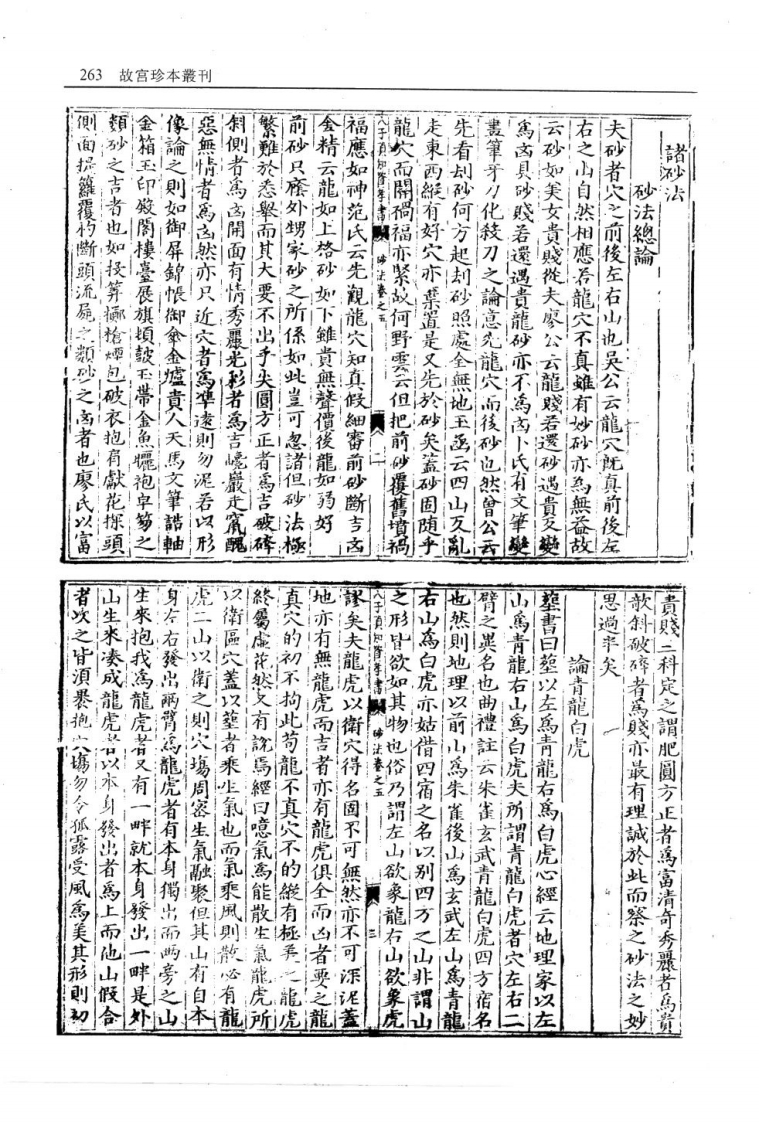 263 故宮珍本叢刊
諸砂法
砂法總論
夫砂者穴之前後左右山也吳公云龍穴既真前後左
右之山自然相應若龍穴不真雖有妙砂亦為無益故
云砂如美女貴賤從夫廖公云龍賤若還砂遇貴反變
為凶具砂賤若還遇貴龍砂亦不為凶卜氏有文筆變
畫筆牙刀化殺刀之論意先龍穴而後砂也然曾公云
先看刦砂何方起刦砂照處全無地玉函云四山反亂
走東西縱有好穴亦棄置是又先於砂矣蓋砂固隨乎
龍穴而關禍福亦緊故何野雲云但把前砂覆舊墳禍
人子須知資孝書 砂法卷之五 二
福應如神范氏云先觀龍穴知真假細審前砂斷吉凶
金精云龍如上格砂如下雖貴無聲價後龍如弱好
前砂只廕外甥家砂之所係如此豈可忽諸但砂法極
繁難於悉舉而其大要不出乎尖圓方正者為吉破碎
斜側者為凶開面有情秀麗光彩者為吉巉巖走竄醜
惡無情者為凶然亦只近穴者為準遠則勿泥若以形
像論之則如御屏錦帳御傘金爐貴人天馬文筆誥軸
金箱玉印殿閣樓臺展旗頓鼓玉帶金魚曬袍卓笏之
類砂之吉者也如投算擲槍煙包破衣抱肩獻花探頭
側面提籮覆杓斷頭流屍之類砂之凶者也廖氏以富
貴賤二科定之謂肥圓方正者為富清奇秀麗者為貴
歆斜破碎者為賤亦最有理誠於此而察之砂法之妙
思過半矣
論青龍白虎
塟書曰塟以左為青龍右為白虎心經云地理家以左
山為青龍右山為白虎夫所謂青龍白虎者穴左右二
臂之異名也曲禮註云朱雀玄武青龍白虎四方宿名
也然則地理以前山為朱雀後山為玄武左山為青龍
右山為白虎亦姑借四宿之名以別四方之山非謂山
之形皆欲如其物也俗乃謂左山欲象龍右山欲象虎
人子須知資孝書 砂法卷之五 三
謬矣夫龍虎以衛穴得名固不可無然亦不可深泥蓋
地亦有無龍虎而吉者亦有龍虎俱全而凶者要之龍
真穴的初不拘此苟龍不真穴不的縱有極美之龍虎
終屬虛花然又有說焉經曰噫氣為能散生氣龍虎所
以衛區穴蓋以塟者乘生氣也而氣乘風則散必有龍
虎二山以衛之則穴塲周密生氣融聚但其山有自本
身左右發出兩臂為龍虎者有本身獨出而兩旁之山
生來抱我為龍虎者又有一畔就本身發出一畔是外
山生來湊成龍虎者以本身發出者為上而他山假合
者次之皆須㬥抱穴塲勿令孤露受風為美其形則初